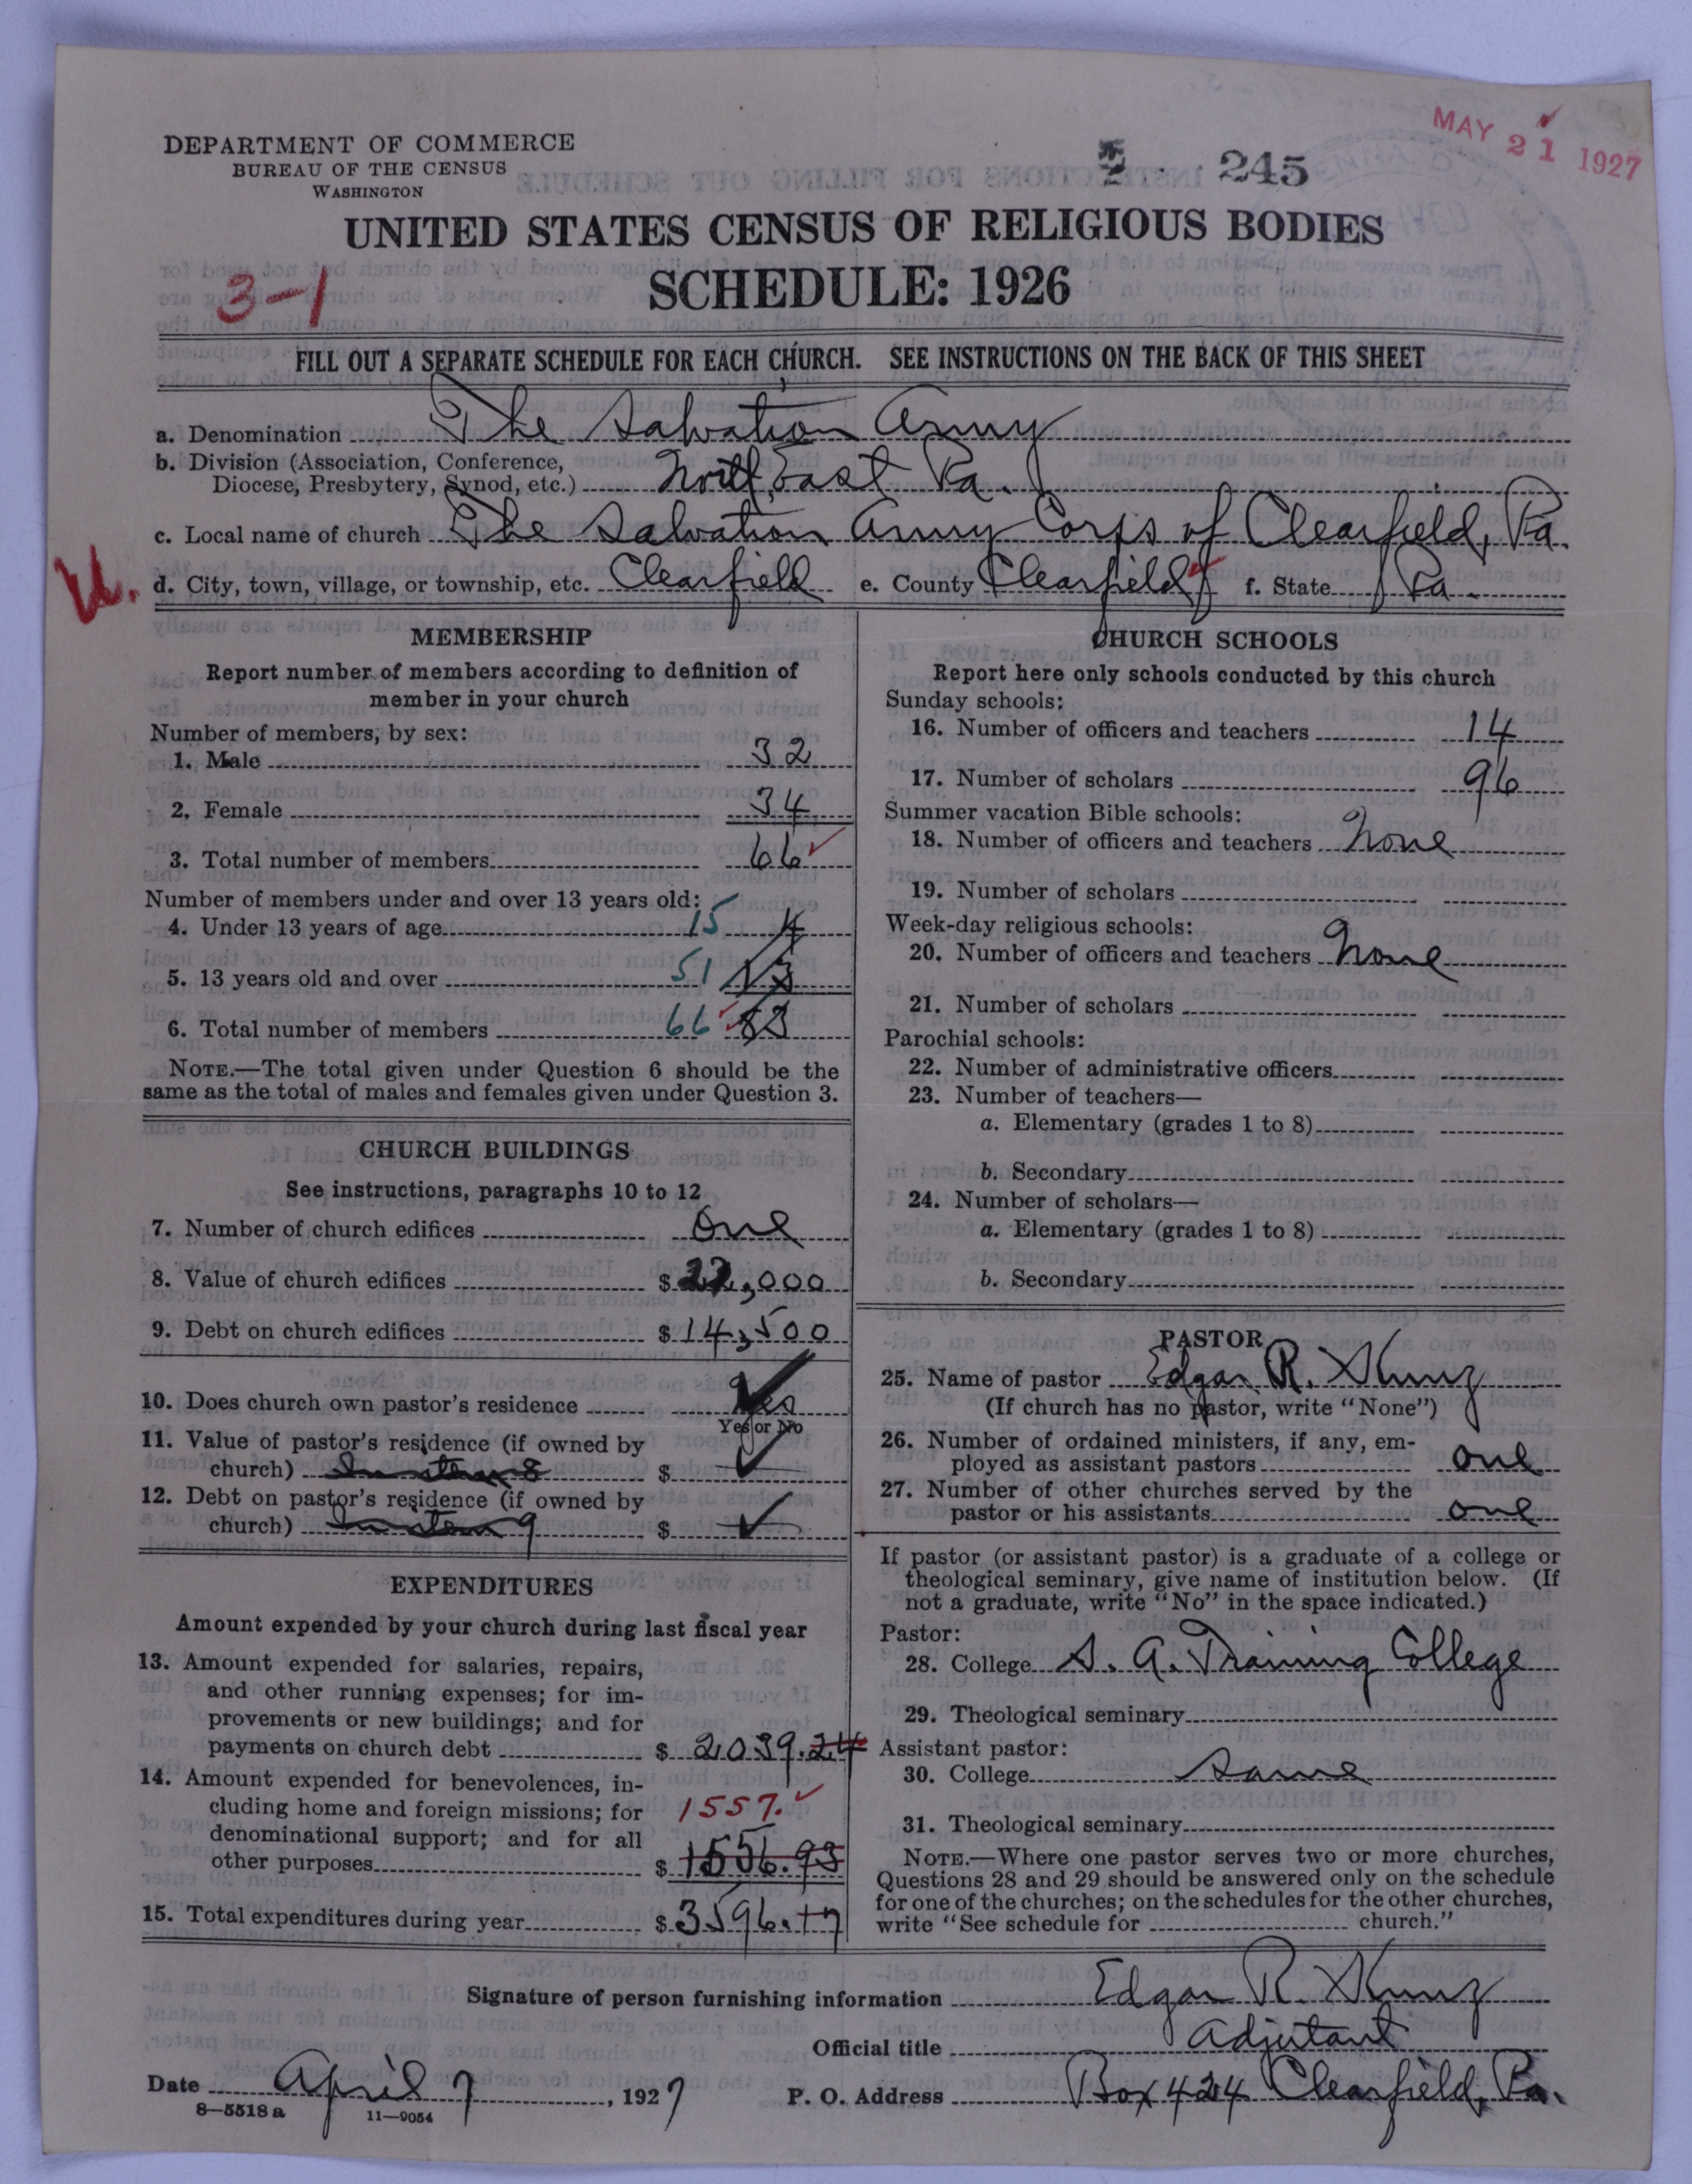 MAY 21 1927
DEPARTMENT OF COMMERCE
BUREAU OF THE CENSUS
WASHINGTON
245
UNITED STATES CENSUS OF RELIGIOUS BODIES
SCHEDULE: 1926
3-1
FILL OUT A SEPARATE SCHEDULE FOR EACH CHURCH. SEE INSTRUCTIONS ON THE BACK OF THIS SHEET
a. Denomination The Salvation Army
b. Division (Association, Conference,
Diocese, Presbytery, Synod, etc.) North East Pa.
c. Local name of church The Salvation Army Corps of Clearfield, Pa.
U.
d. City, town, village, or township, etc. Clearfield e. County Clearfield f. State Pa.
MEMBERSHIP
Report number of members according to definition of
member in your church
Number of members, by sex:
1. Male 32
2. Female 34
3. Total number of members 66
Number of members under and over 13 years old:
4. Under 13 years of age 15 4
5. 13 years old and over 51 13
6. Total number of members 66
NOTE.—The total given under Question 6 should be the
same as the total of males and females given under Question 3.
CHURCH BUILDINGS
See instructions, paragraphs 10 to 12
7. Number of church edifices One
8. Value of church edifices $ 22,000
9. Debt on church edifices $ 14,500
10. Does church own pastor's residence Yes
Yes or No
11. Value of pastor's residence (if owned by
church) In item 8 $
12. Debt on pastor's residence (if owned by
church) In item 9 $
EXPENDITURES
Amount expended by your church during last fiscal year
13. Amount expended for salaries, repairs,
and other running expenses; for im-
provements or new buildings; and for
payments on church debt $ 2039.24
14. Amount expended for benevolences, in-
cluding home and foreign missions; for 1557.
denominational support; and for all
other purposes $ 1556.93
15. Total expenditures during year $ 3596.17
CHURCH SCHOOLS
Report here only schools conducted by this church
Sunday schools:
16. Number of officers and teachers 14
17. Number of scholars 96
Summer vacation Bible schools:
18. Number of officers and teachers None
19. Number of scholars
Week-day religious schools:
20. Number of officers and teachers None
21. Number of scholars
Parochial schools:
22. Number of administrative officers
23. Number of teachers—
a. Elementary (grades 1 to 8)
b. Secondary
24. Number of scholars—
a. Elementary (grades 1 to 8)
b. Secondary
PASTOR
25. Name of pastor Edgar R.
(If church has no pastor, write "None")
26. Number of ordained ministers, if any, em-
ployed as assistant pastors one
27. Number of other churches served by the
pastor or his assistants one
If pastor (or assistant pastor) is a graduate of a college or
theological seminary, give name of institution below. (If
not a graduate, write "No" in the space indicated.)
Pastor:
28. College S. A. Training College
29. Theological seminary
Assistant pastor:
30. College Same
31. Theological seminary
NOTE.—Where one pastor serves two or more churches,
Questions 28 and 29 should be answered only on the schedule
for one of the churches; on the schedules for the other churches,
write "See schedule for church."
Signature of person furnishing information Edgar R.
Official title Adjutant
Date April 7, 1927 P. O. Address Box 424 Clearfield, Pa.
8—5518a 11—9054